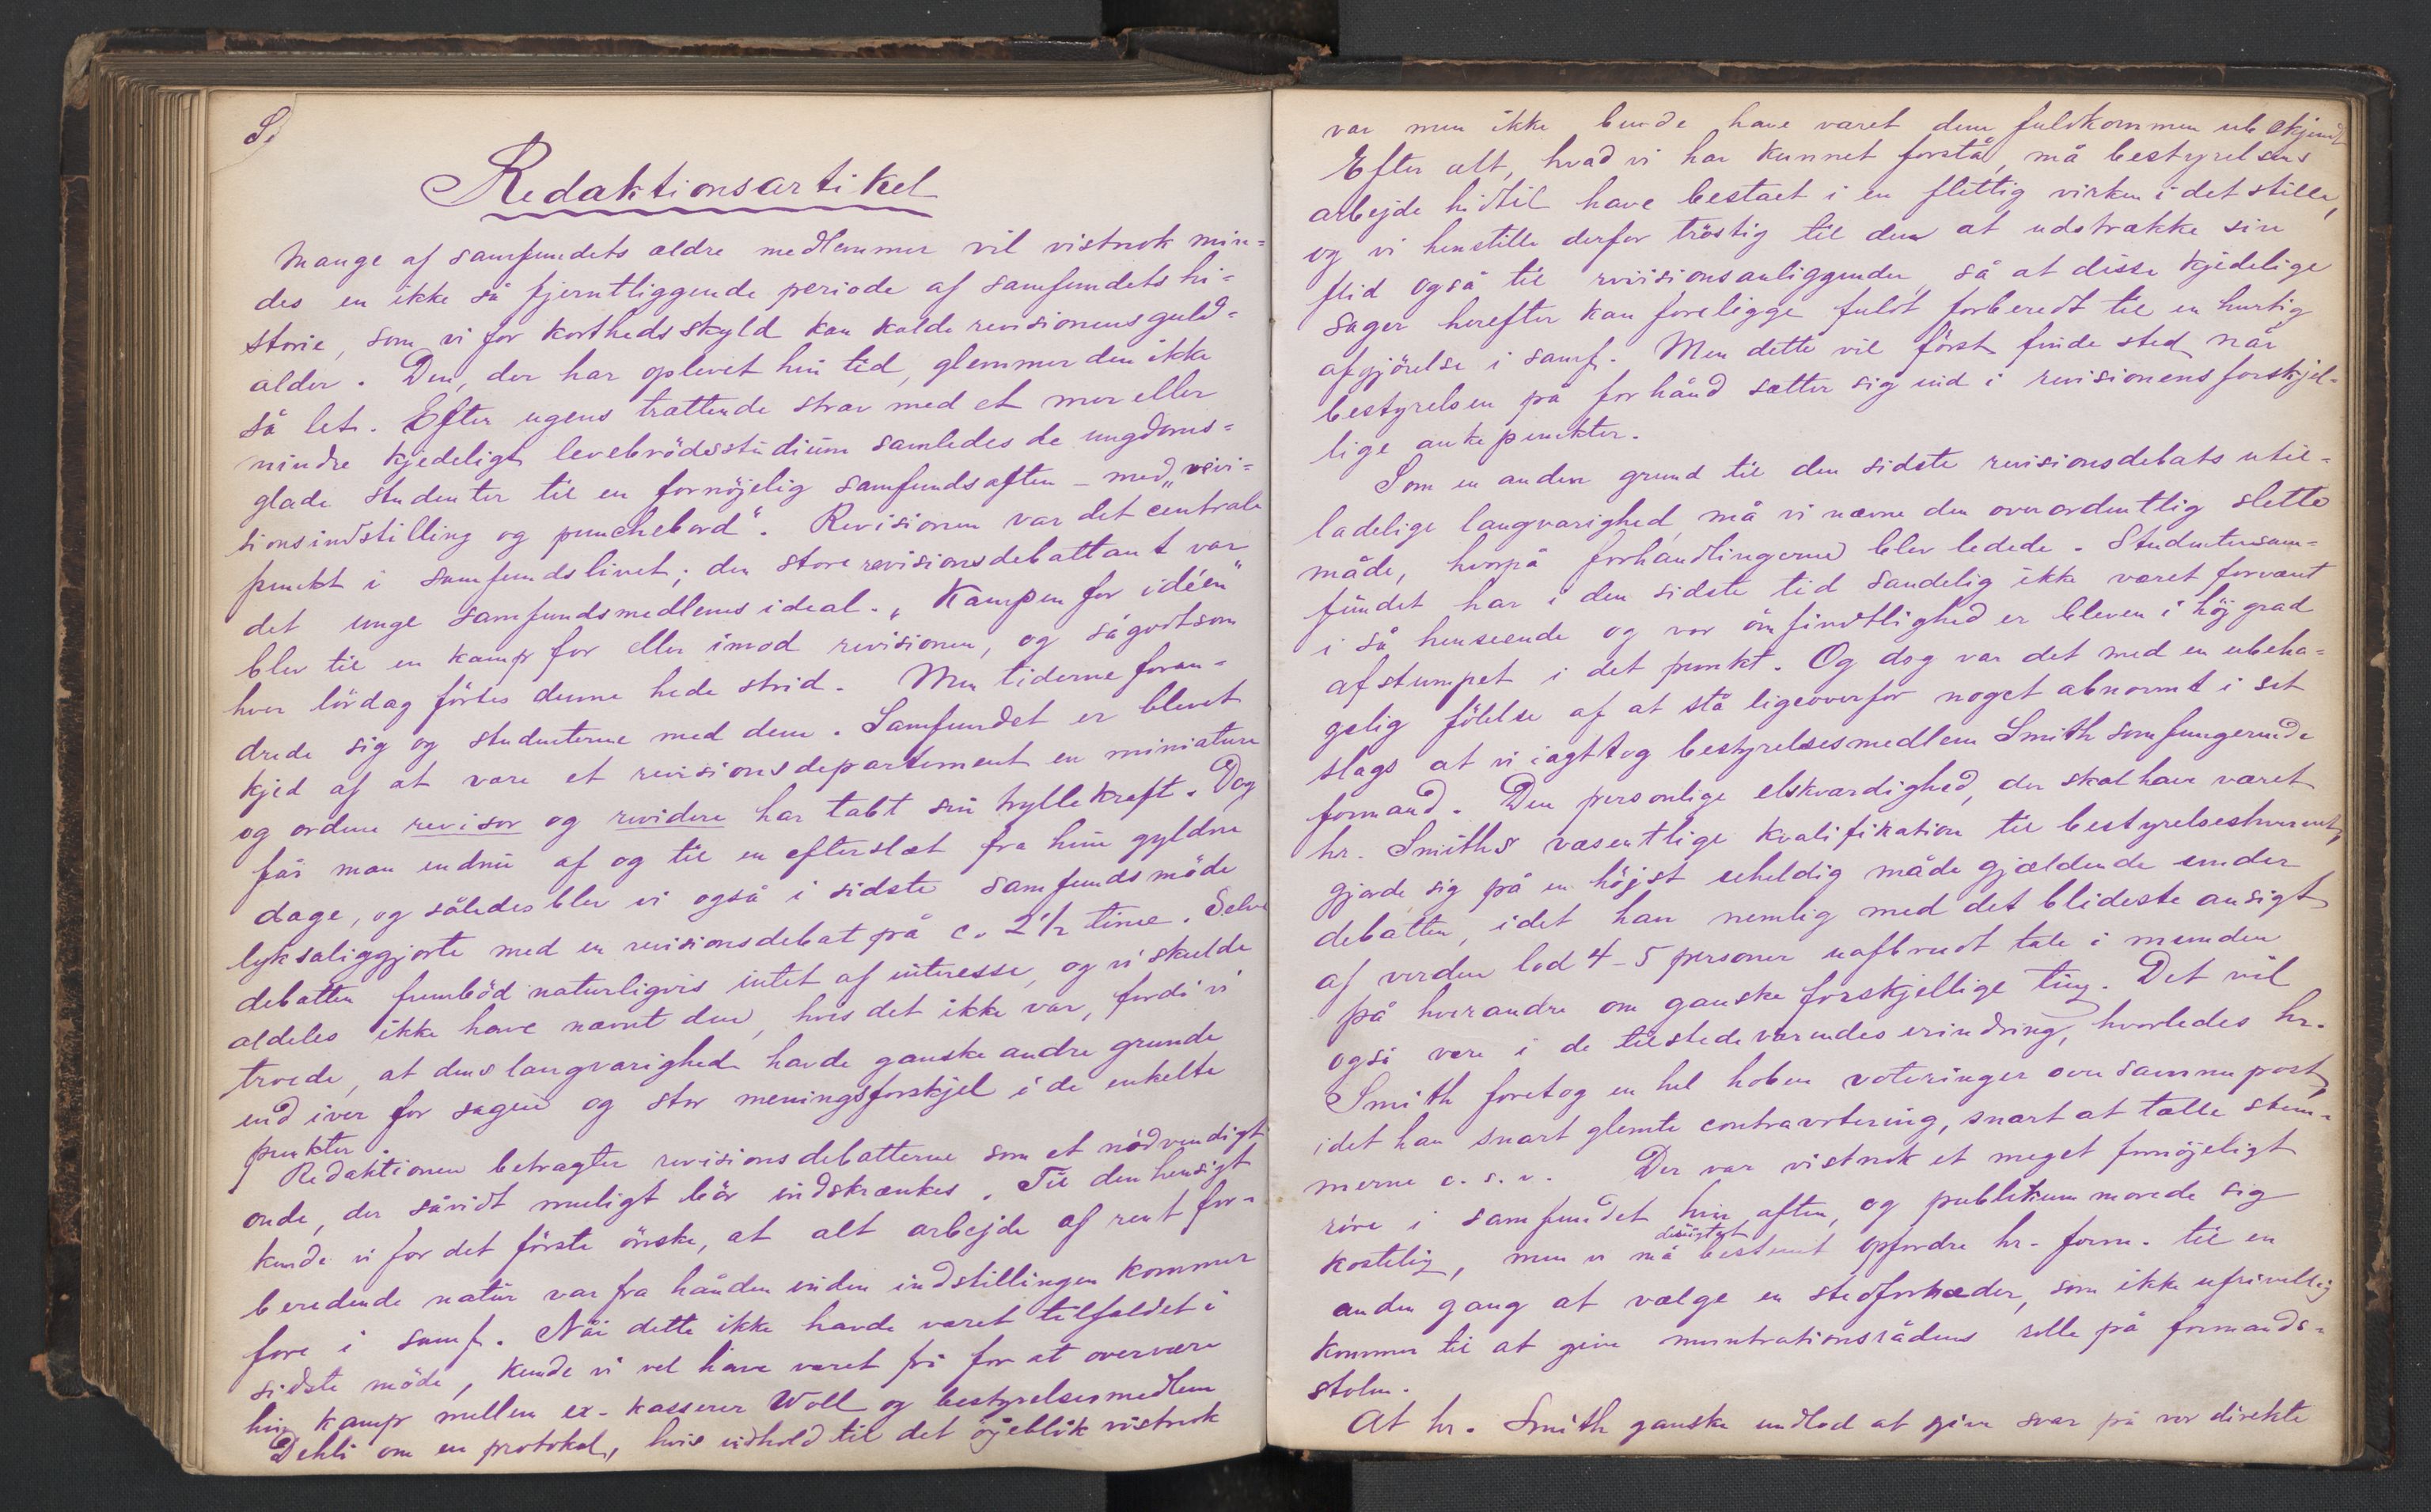 S.
Redaktionsartikel
Mange af samfundets ældre medlemmer vil vistnok min=
des en ikke så fjerntliggende periode af samfundets hi=
storie, som vi for kortheds skyld kan kalde revisionens guld=
alder. Den, der har oplevet hin tid, glemmer den ikke
så let. Efter ugens trættende stræv med et mer eller
mindre kjedeligt levebrödsstudium samledes de ungdoms=
glade studenter til en fornöjelig samfundsaften – med „revi=
sionsindstilling og punchebord“. Revisionen var det centrale
punkt i samfundslivet; den store revisionsdebattant var
det unge samfundsmedlems ideal. „Kampen for idéen“
blev til en kamp for eller imod revisionen, og så godt som
hver lördag förtes denne hede strid. Men tiderne foran=
drede sig og studenterne med dem. Samfundet er blevet
kjed af at være et revisionsdepartement en miniature
og ordene revisor og revidere har tabt sin tryllekraft. Dog
får man endnu af og til en efterslæt fra hine gyldne
dage, og således blev vi også i sidste samfundsmöde
lyksaliggjorte med en revisionsdebat på c. 2 1/2 time. Selve
debatten frembød naturligvis intet af interesse, og vi skulde
aldeles ikke have nævnt den, hvis det ikke var, fordi vi
troede, at dens langvarighed havde ganske andre grunde
end iver for sagen og stor meningsforskjel i de enkelte
punkter.
Redaktionen betragter revisionsdebatterne som et nödvendigt
onde, der såvidt muligt bör indskrænkes. Til den hensigt
kunde vi for det förste önske, at alt arbejde af rent for=
beredende natur var fra hånden inden indstillingen kommer
fore i samf. Når dette ikke havde været tilfældet i
sidste möde, kunde vi vel have været fri for at overvære
hin kamp mellem ex-kasserer Woll og bestyrelsesmedlem
Dehli om en protokol, hvis indhold til det öjeblik vistnok
var men ikke burde have været dem fuldkommen ubekjendt
Efter alt, hvad vi har kunnet forstå, må bestyrelsens
arbejde hidtil have bestaet i en flittig virken i det stille,
og vi henstille derfor tröstig til dem at udstrække sin
flid også til revisionsanliggender, så at disse kjedelige
sager herefter kan foreligge fuldt forberedt til en hurtig
afgjörelse i samf. Men dette vil först finde sted når
bestyrelsen på forhånd sætter sig ind i revisionens forskjel=
lige ankepunkter.
Som en anden grund til den sidste revisionsdebats util=
ladelige langvarighed må vi nævne den overordentlig slette
måde, hvorpå forhandlingerne blev ledede. Studentersam=
fundet har i den sidste tid sandelig ikke været forvænt
i så henseende og vor ömfindtlighed er bleven i höj grad
afstumpet i det punkt. Og dog var det med en ubeha=
gelig fölelse af at stå ligeoverfor noget abnormt i sit
slags at vi iagttog bestyrelsesmedlem Smith som fungerende
formand. Den personlige elskværdighed, der skal have været
hr. Smiths væsentlige kvalifikation til bestyrelseshvervet,
gjorde sig på en höjst uheldig måde gjældende under
debatten, idet han nemlig med det blideste ansigt
af verden lod 4–5 personer uafbrudt tale i munden
på hverandre om ganske forskjellige ting. Det vil
også være i de tilstedeværendes erindring, hvorledes hr.
Smith foretog en hel hoben voteringer over samme post,
idet han snart glemte contravotering, snart at tælle stem=
merne o. s. v. Der var vistnok et meget fornöjeligt
röre i samfundet hin aften, og publikum morede sig
kostelig, men vi må desuagtet bestemt opfordre hr. form. til en
anden gang at vælge en stedfortræder, som ikke ufrivillig
kommer til at give munstrationsrådens rolle på formands=
stolen.
At hr. Smith ganske undlod at give svar på vor direkte